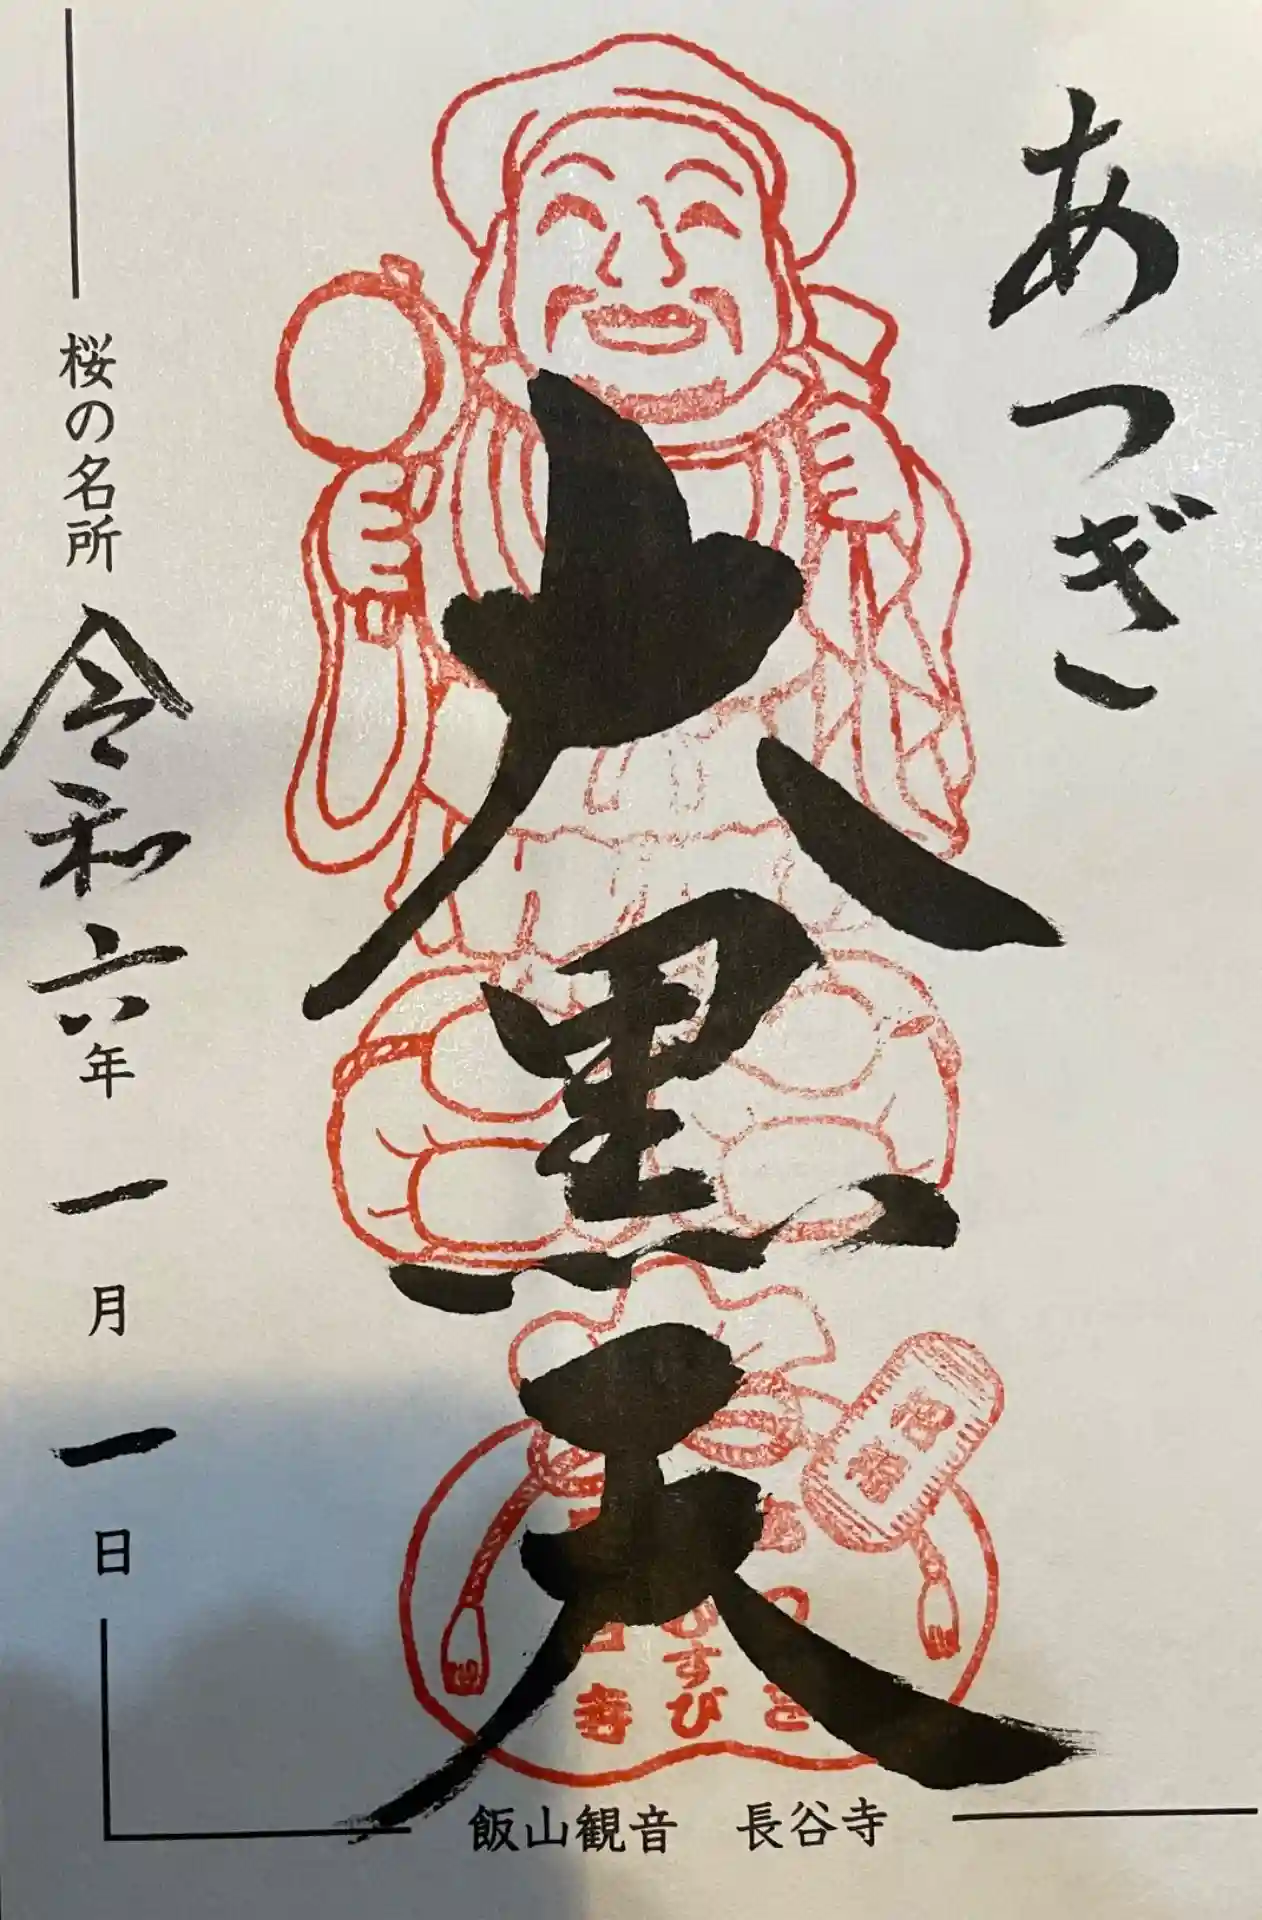 あつぎ
大黒天
むすび
寺
桜の名所 令和六年一月一日
飯山観音 長谷寺